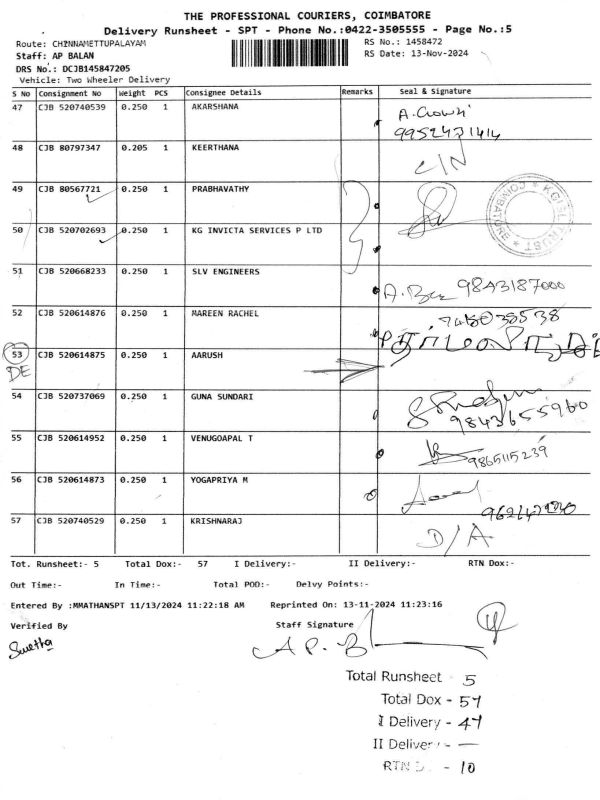 THE PROFESSIONAL COURIERS, COIMBATORE
Delivery Runsheet - SPT - Phone No.:0422-3505555 - Page No.:5
Route: CHINNAMETTUPALAYAM RS No.: 1458472
Staff: AP BALAN RS Date: 13-Nov-2024
DRS No.: DCJB145847205
Vehicle: Two Wheeler Delivery
S No Consignment No Weight PCS Consignee Details Remarks Seal & Signature
47 CJB 520740539 0.250 1 AKARSHANA
9952471414
48 CJB 80797347 0.205 1 KEERTHANA C/N
49 CJB 80567721 0.250 1 PRABHAVATHY
50 CJB 520702693 0.250 1 KG INVICTA SERVICES P LTD
COIMBATORE
51 CJB 520668233 0.250 1 SLV ENGINEERS 9843187000
52 CJB 520614876 0.250 1 MAREEN RACHEL
53 CJB 520614875 0.250 1 AARUSH
DE
54 CJB 520737069 0.250 1 GUNA SUNDARI
9843655960
55 CJB 520614952 0.250 1 VENUGOAPAL T 9865115239
56 CJB 520614873 0.250 1 YOGAPRIYA M
57 CJB 520740529 0.250 1 KRISHNARAJ D/A
Tot. Runsheet:- 5 Total Dox:- 57 I Delivery:- II Delivery:- RTN Dox:-
Out Time:- In Time:- Total POD:- Delvy Points:-
Entered By :MMATHANSPT 11/13/2024 11:22:18 AM Reprinted On: 13-11-2024 11:23:16
Verified By Staff Signature
Swetha A P. B
Total Runsheet - 5
Total Dox - 57
I Delivery - 47
II Delivery - —
RTN D - 10